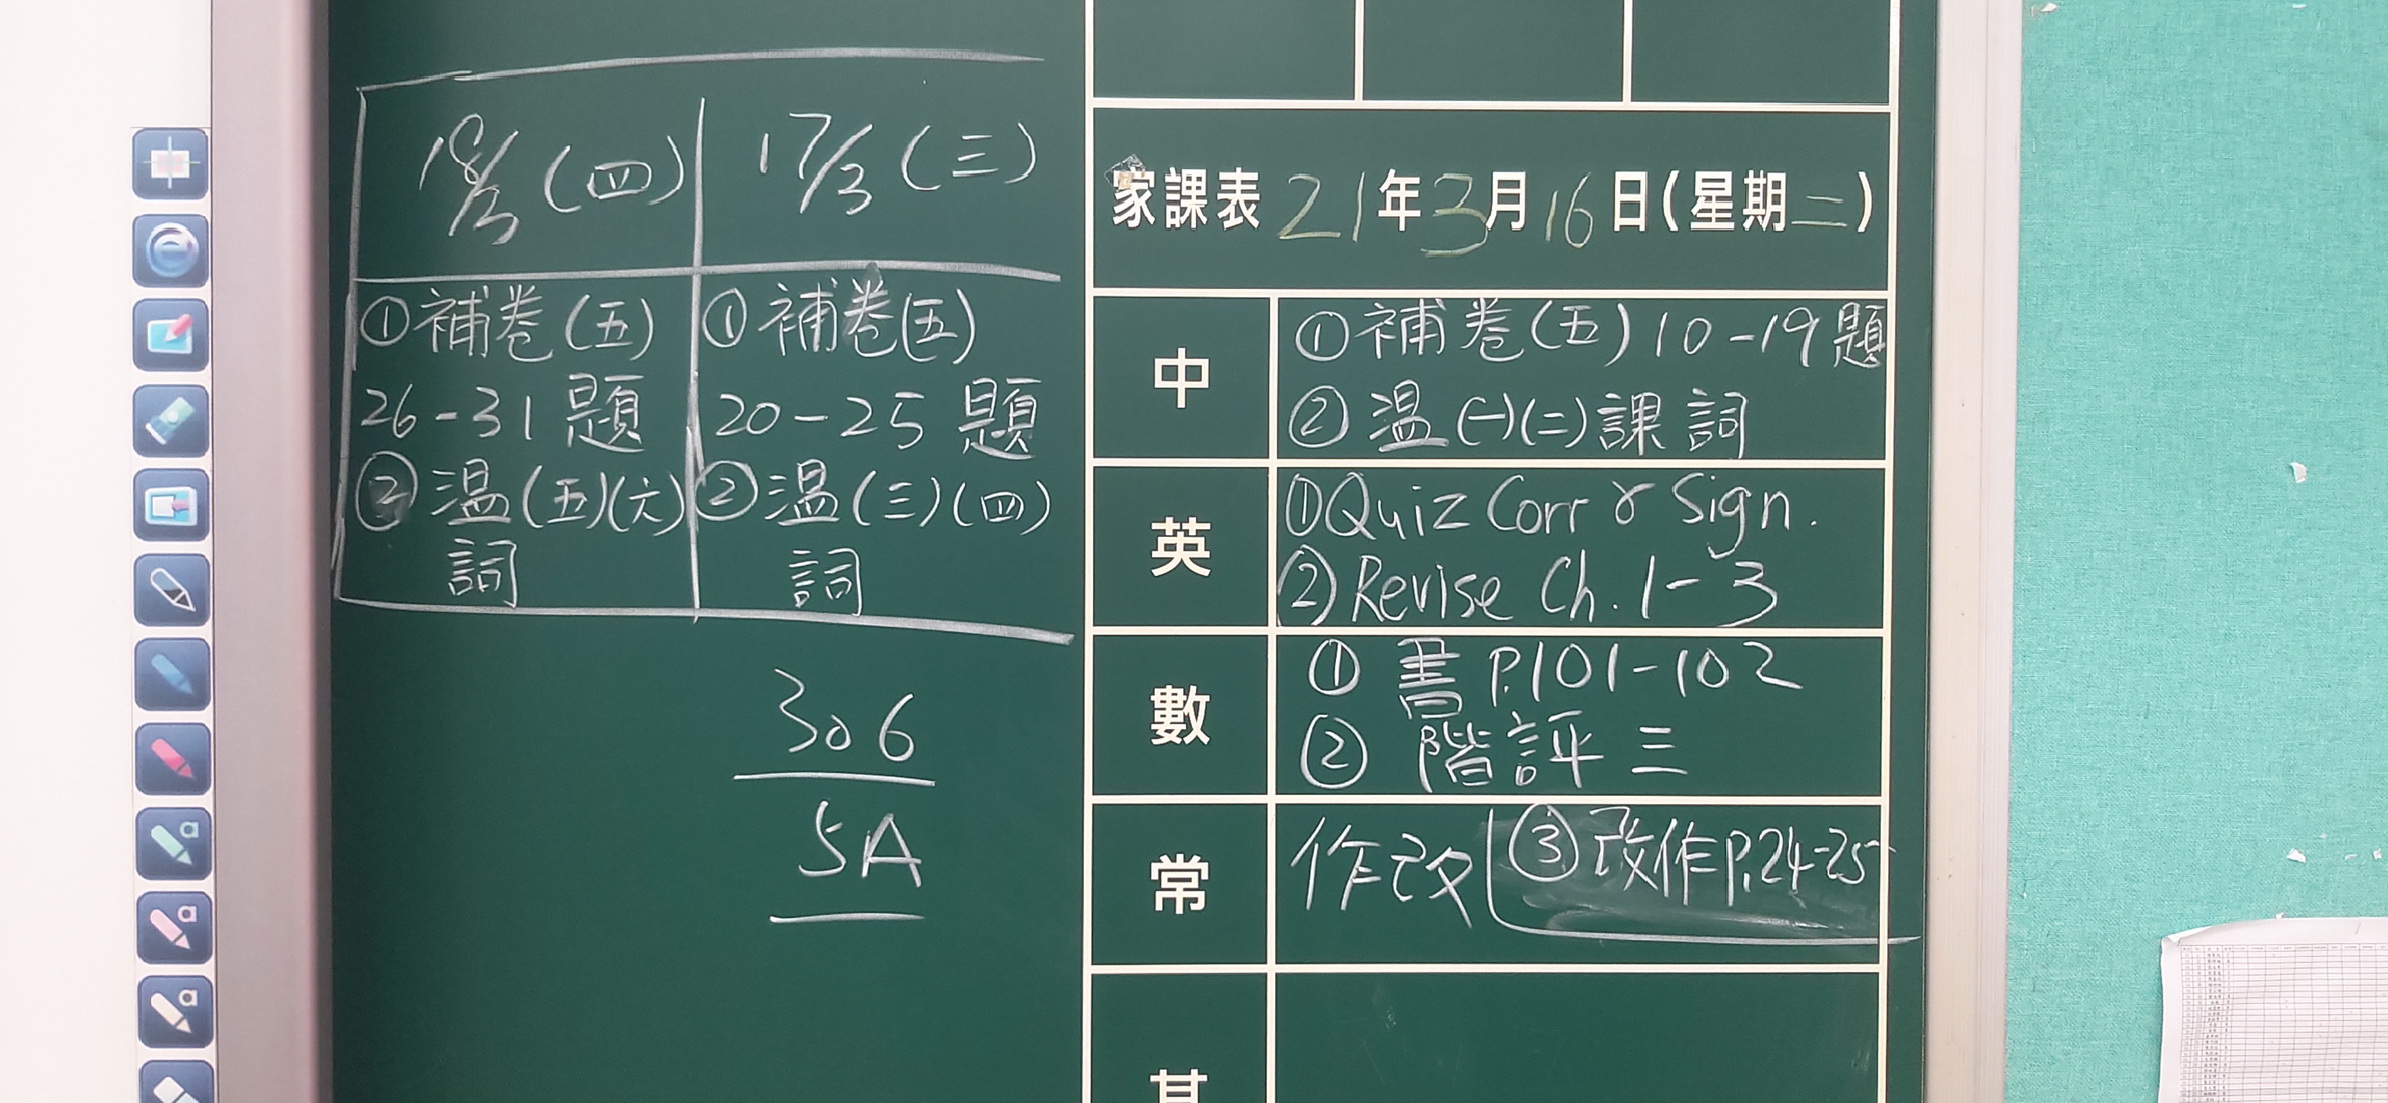 18/3 (四)
17/3 (三)
①補卷(五)
26-31題
②溫(五)(六)
詞
①補卷(五)
20-25題
②溫(三)(四)
詞
306
5A
家課表21年3月16日(星期二)
中
①補卷(五)10-19題
②溫(一)(二)課詞
英
①Quiz Corr & Sign.
②Revise Ch. 1-3
數
①書P.101-102
②階評三
常
作改
③改作P.24-25
其